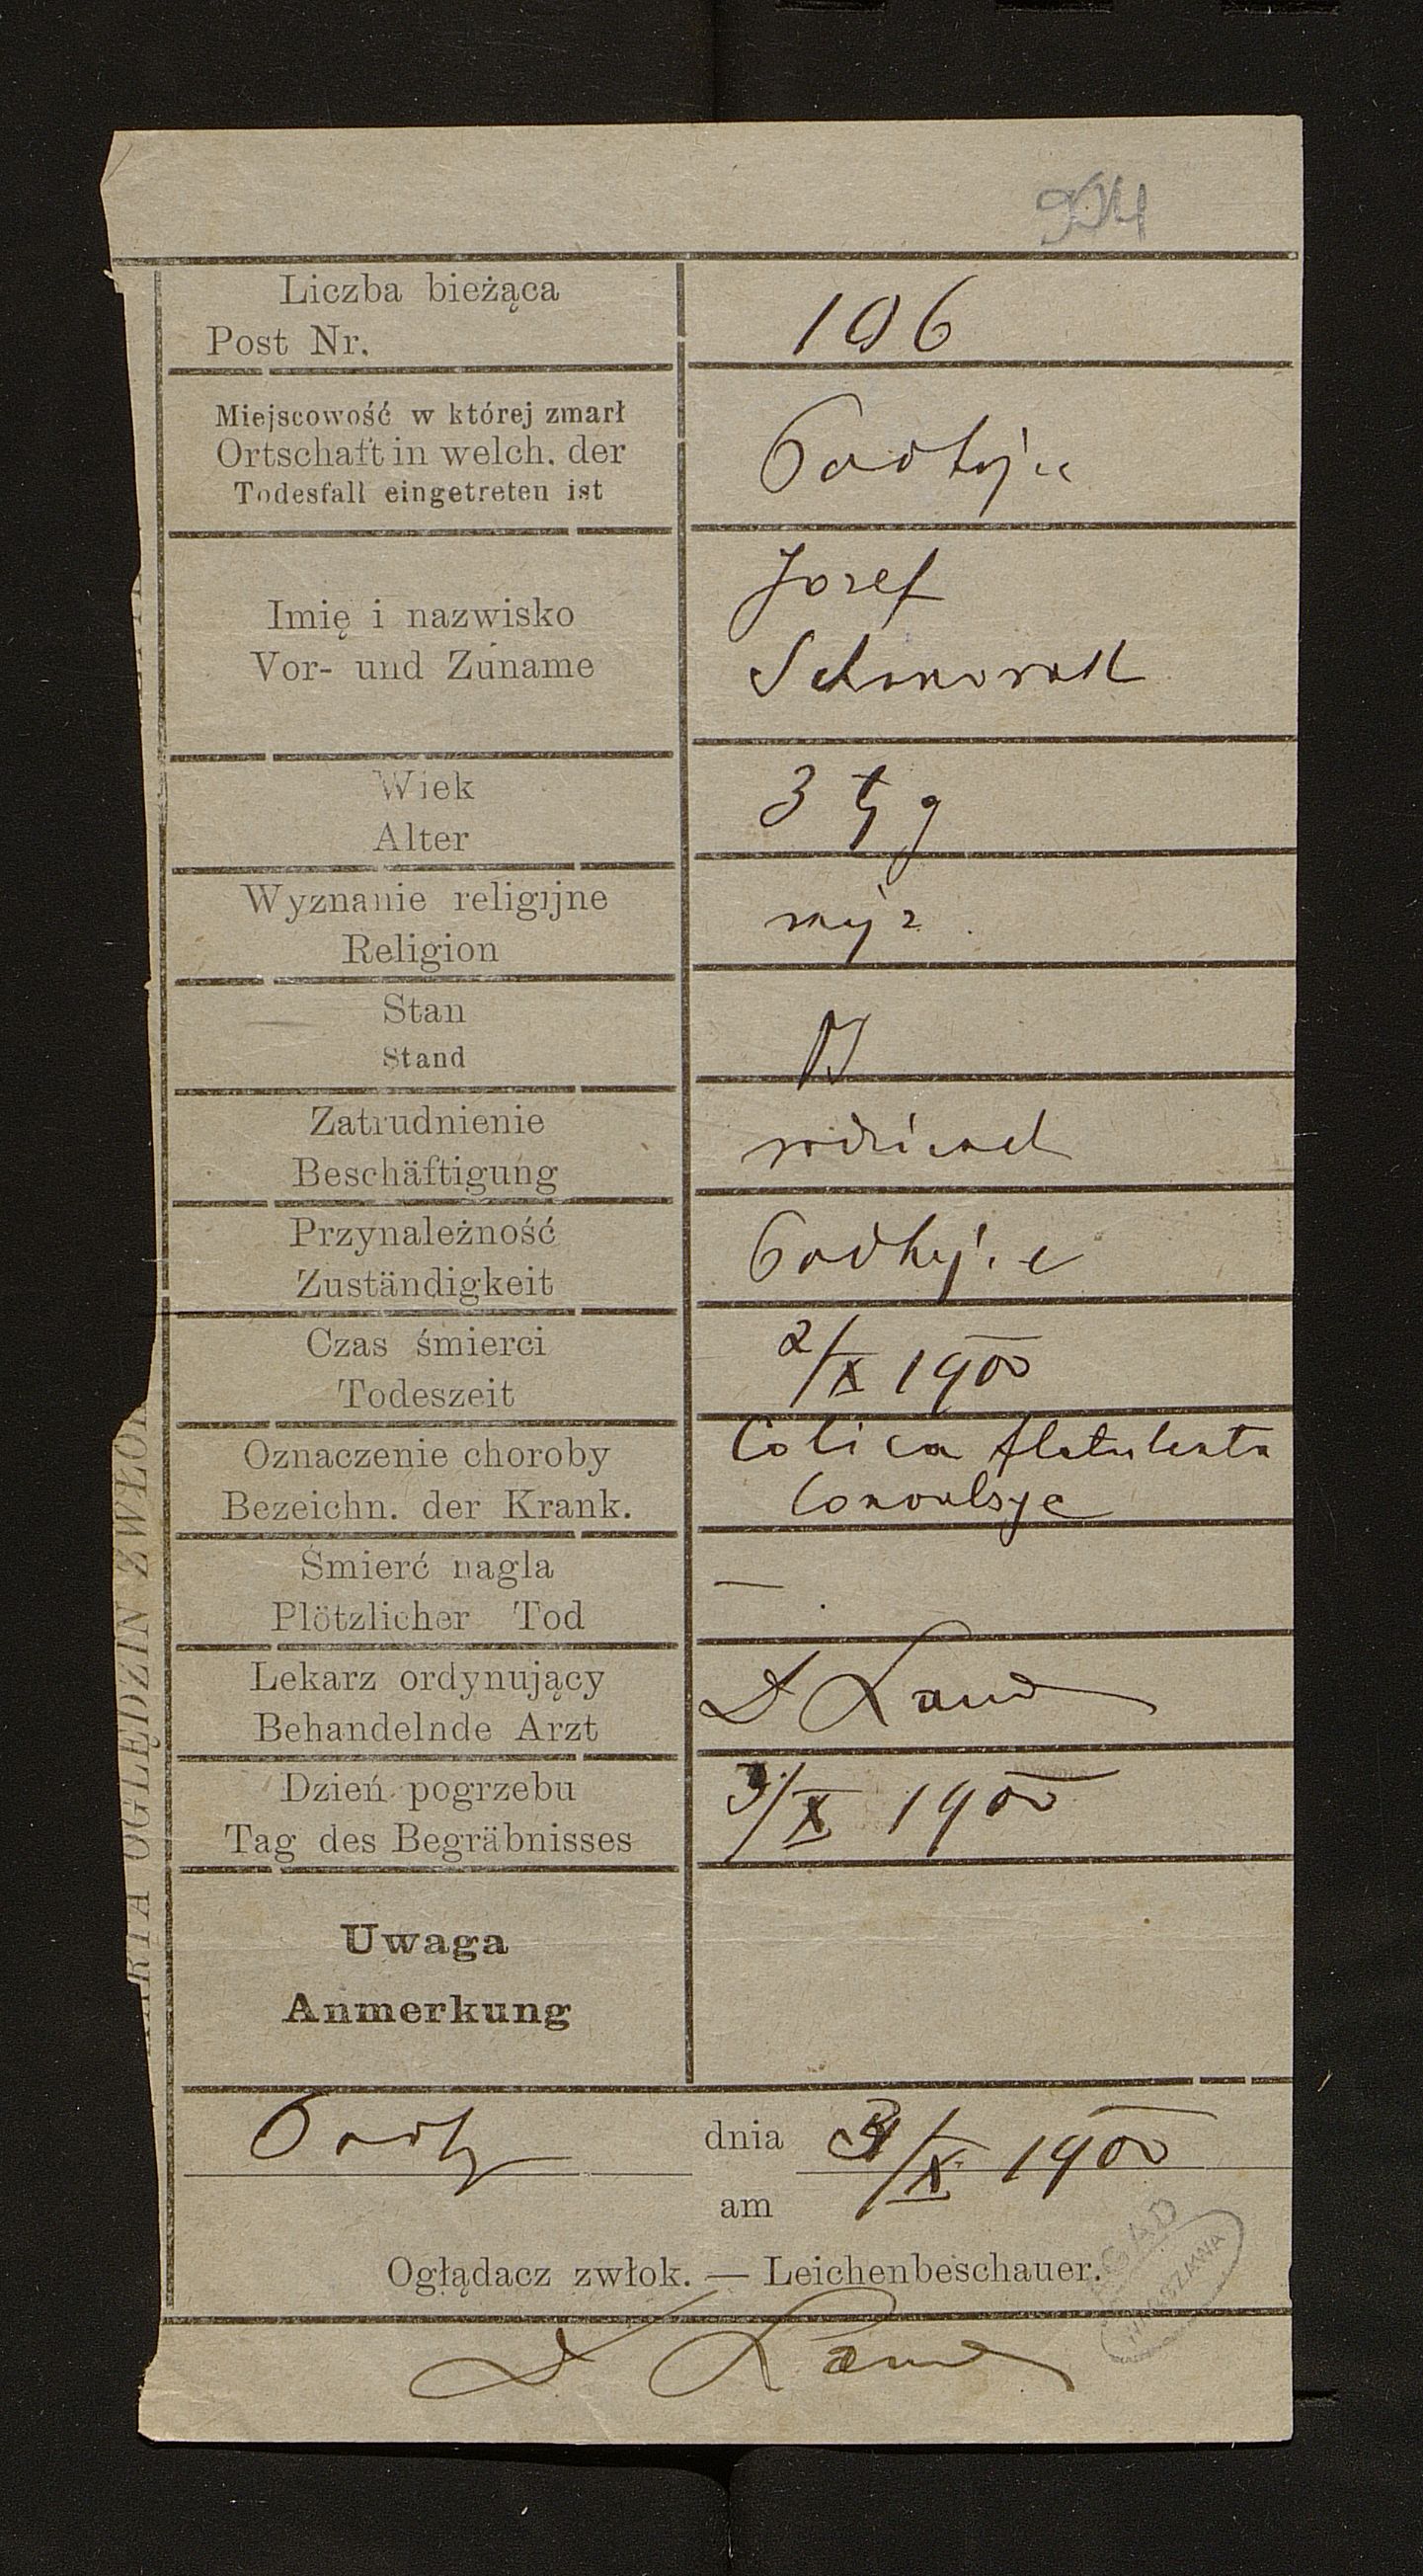 Liczba bieżąca
Post Nr.
196
Miejscowość w której zmarł
Ortschaft in welch. der
Todesfall eingetreten ist
Podhajce
Imię i nazwisko
Vor- und Zuname
Jozef
Wiek
Alter
3 tyg
Wyznanie religijne
Religion
mojż
Stan
Stand
Zatrudnienie
Beschäftigung
Przynależność
Zuständigkeit
Podhajce
Czas śmierci
Todeszeit
2/X 1900
Oznaczenie choroby
Bezeichn. der Krank.
Colica flatulenta
Convulsye
Śmierć nagla
Plötzlicher Tod
—
Lekarz ordynujący
Behandelnde Arzt
Dzień pogrzebu
Tag des Begräbnisses
3/X 1900
Uwaga
Anmerkung
Podh
dnia
am
3/X 1900
Oglądacz zwłok. — Leichenbeschauer.
KARTA OGLĘDZIN ZWŁOK
AGAD
WARSZAWA